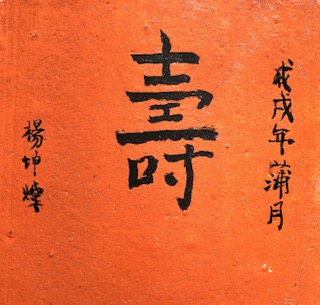 戊戌年蒲月
壽
楊坤燦